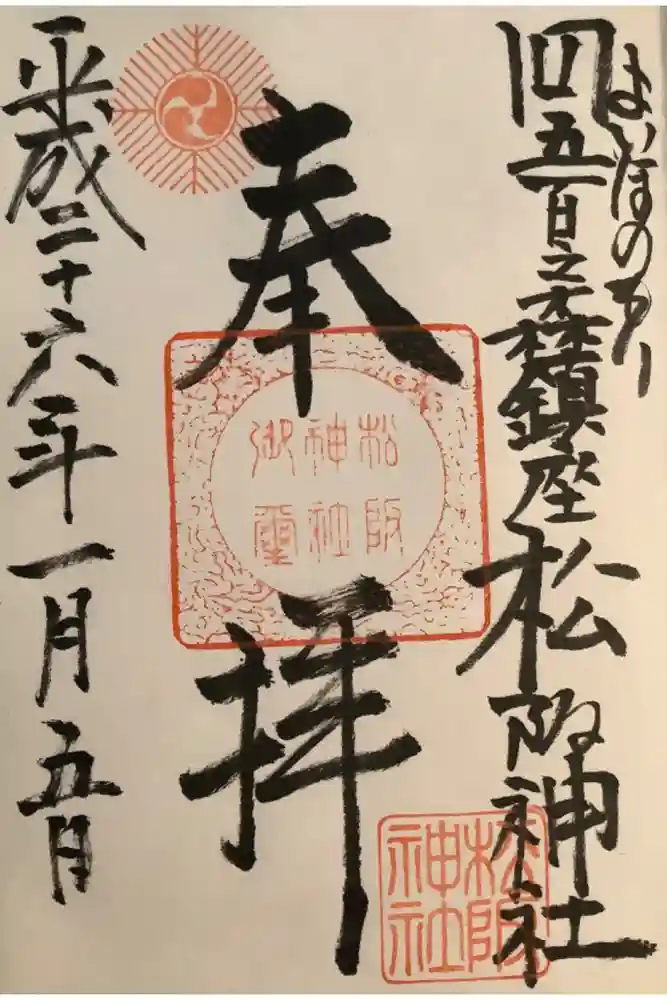 よいほのもり
四五百之森鎮座
松阪神社
奉拝
松阪
神社
御璽
平成二十六年一月五日
松阪
神社